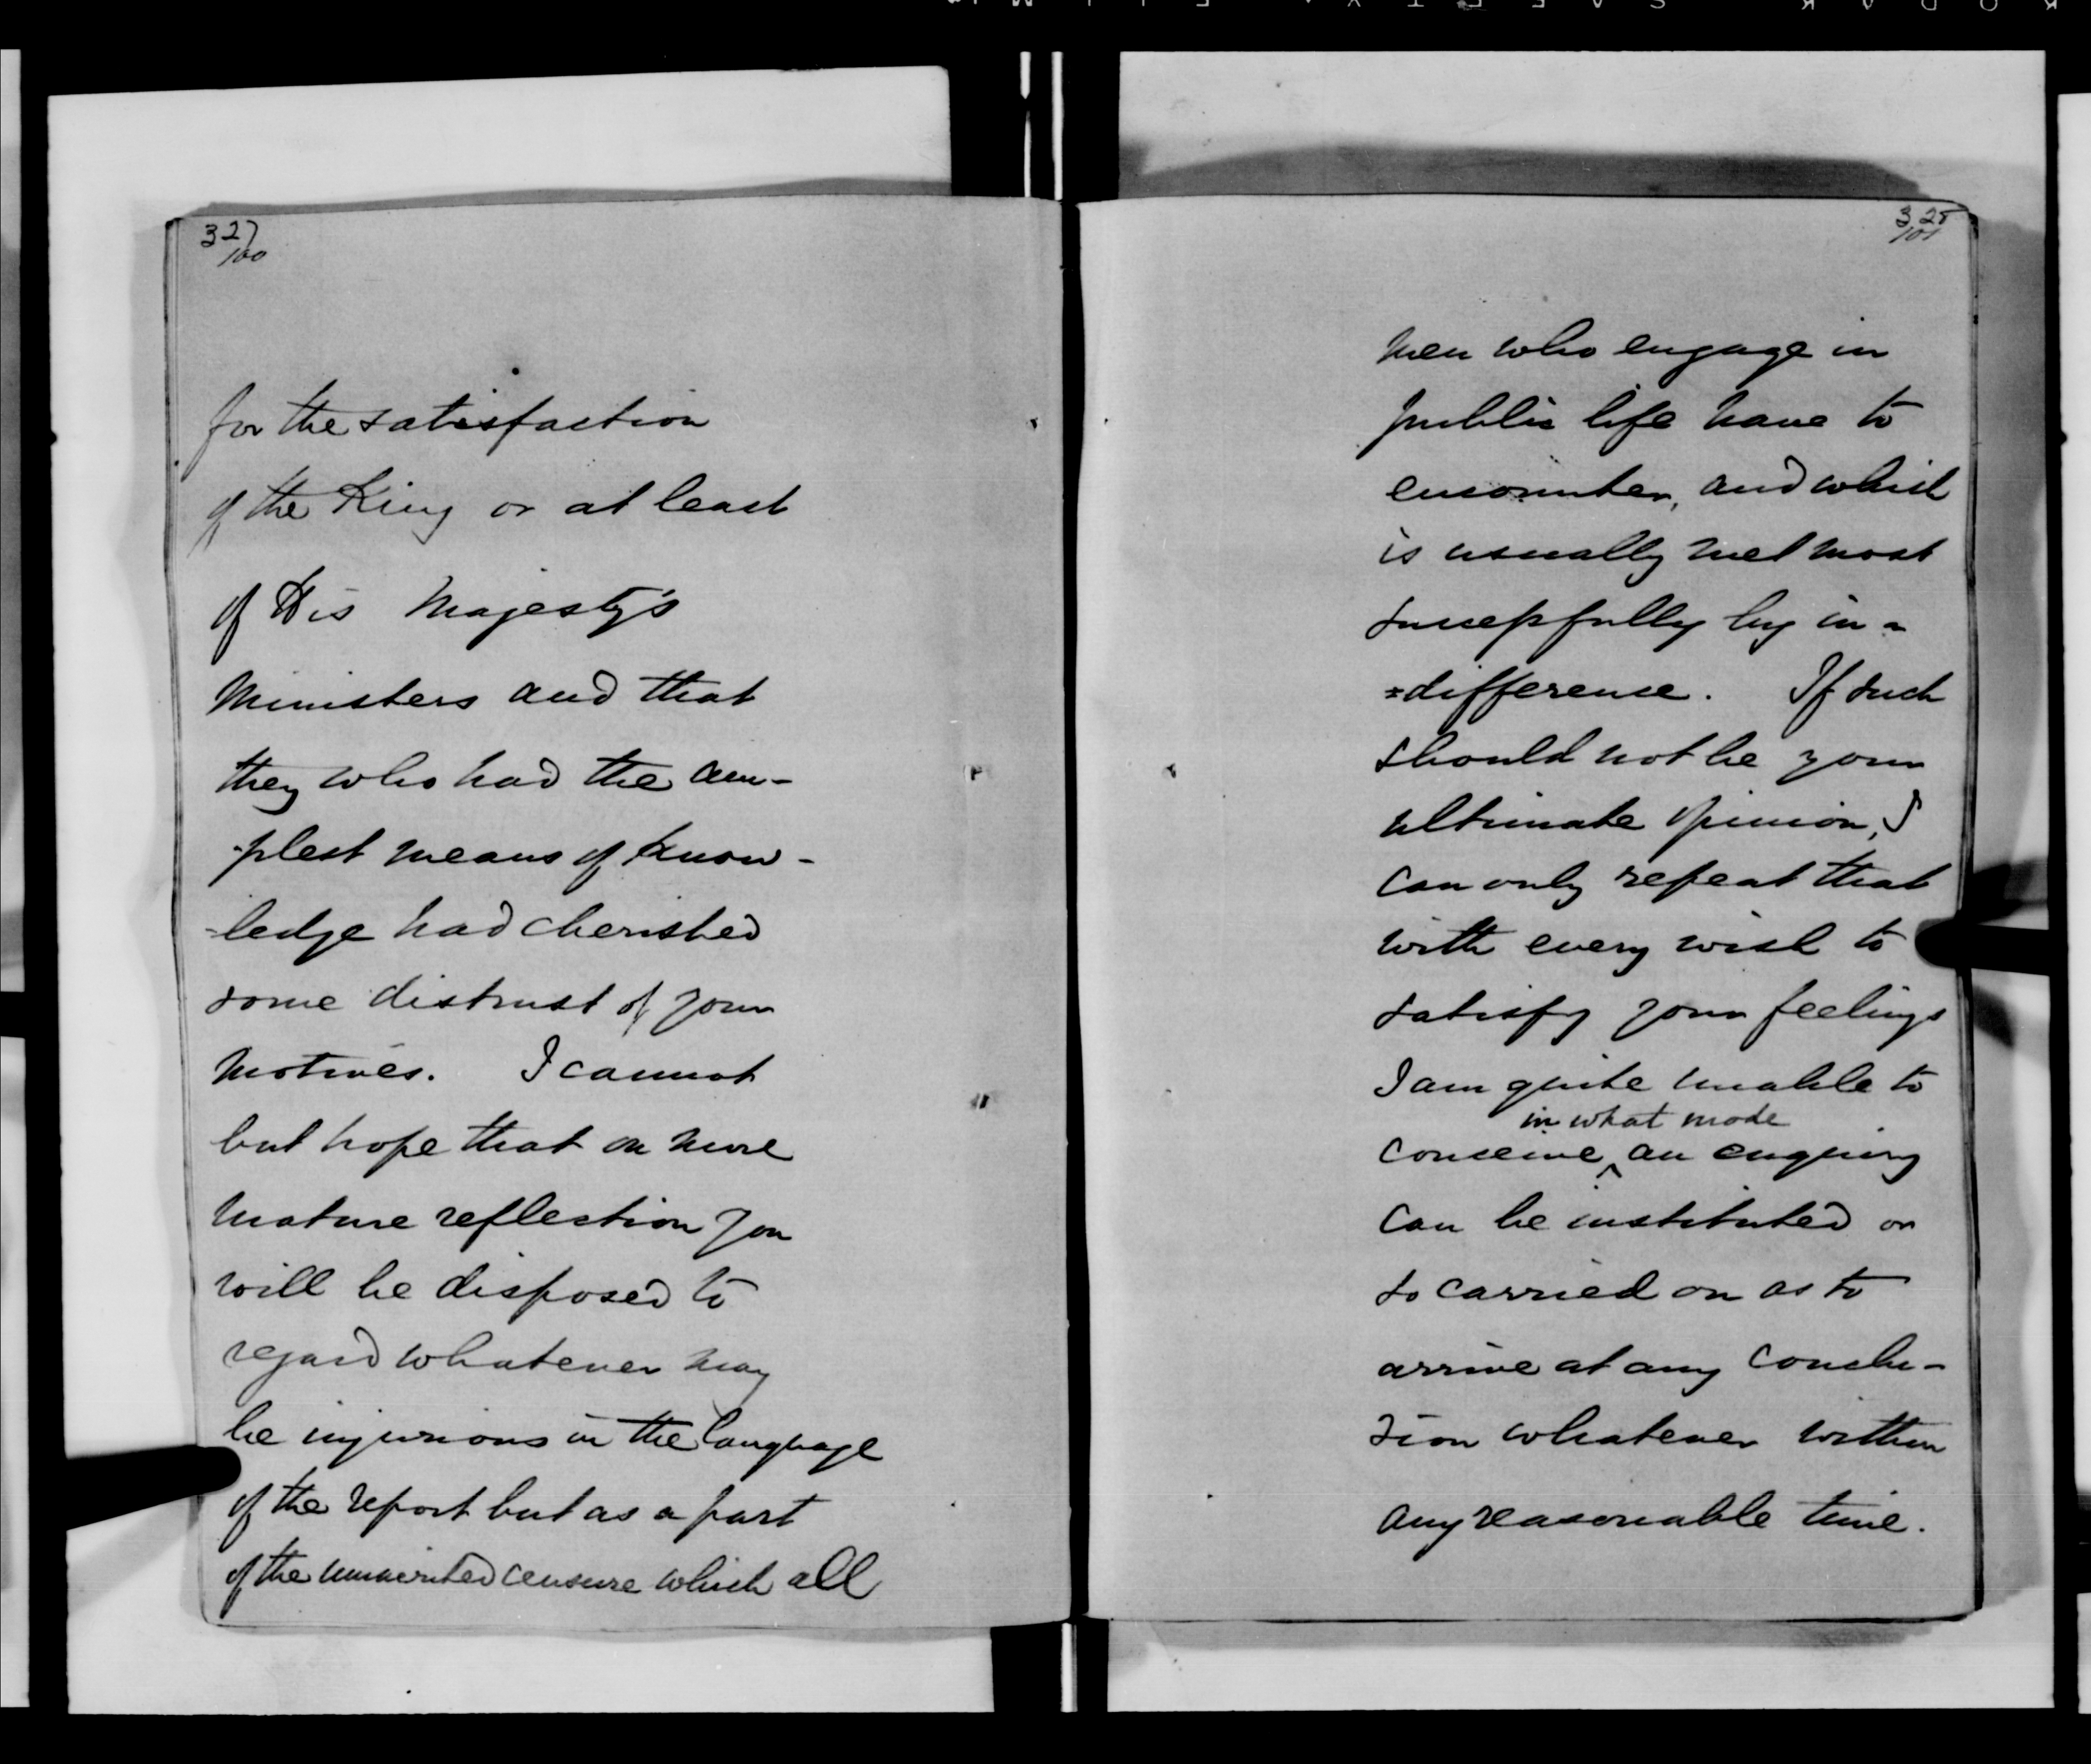 327
/100
for the satisfaction
of the King or at least
of His Majesty's
Ministers and that
they who had the am-
-plest means of know-
-ledge had cherished
some distrust of your
motives. I cannot
but hope that on more
mature reflection you
will be disposed to
regard whatever may
be injurious in the language
of the report but as a part
of the unmerited censure which all
328
/101
men who engage in
public life have to
encounter, and which
is usually met most
successfully by in-
=difference. If such
should not be your
ultimate opinion, I
can only repeat that
with every wish to
satisfy your feelings
I am quite unable to
in what mode
conceive ^ an enquiry
can be instituted or
so carried on as to
arrive at any conclu-
sion whatever within
any reasonable time.